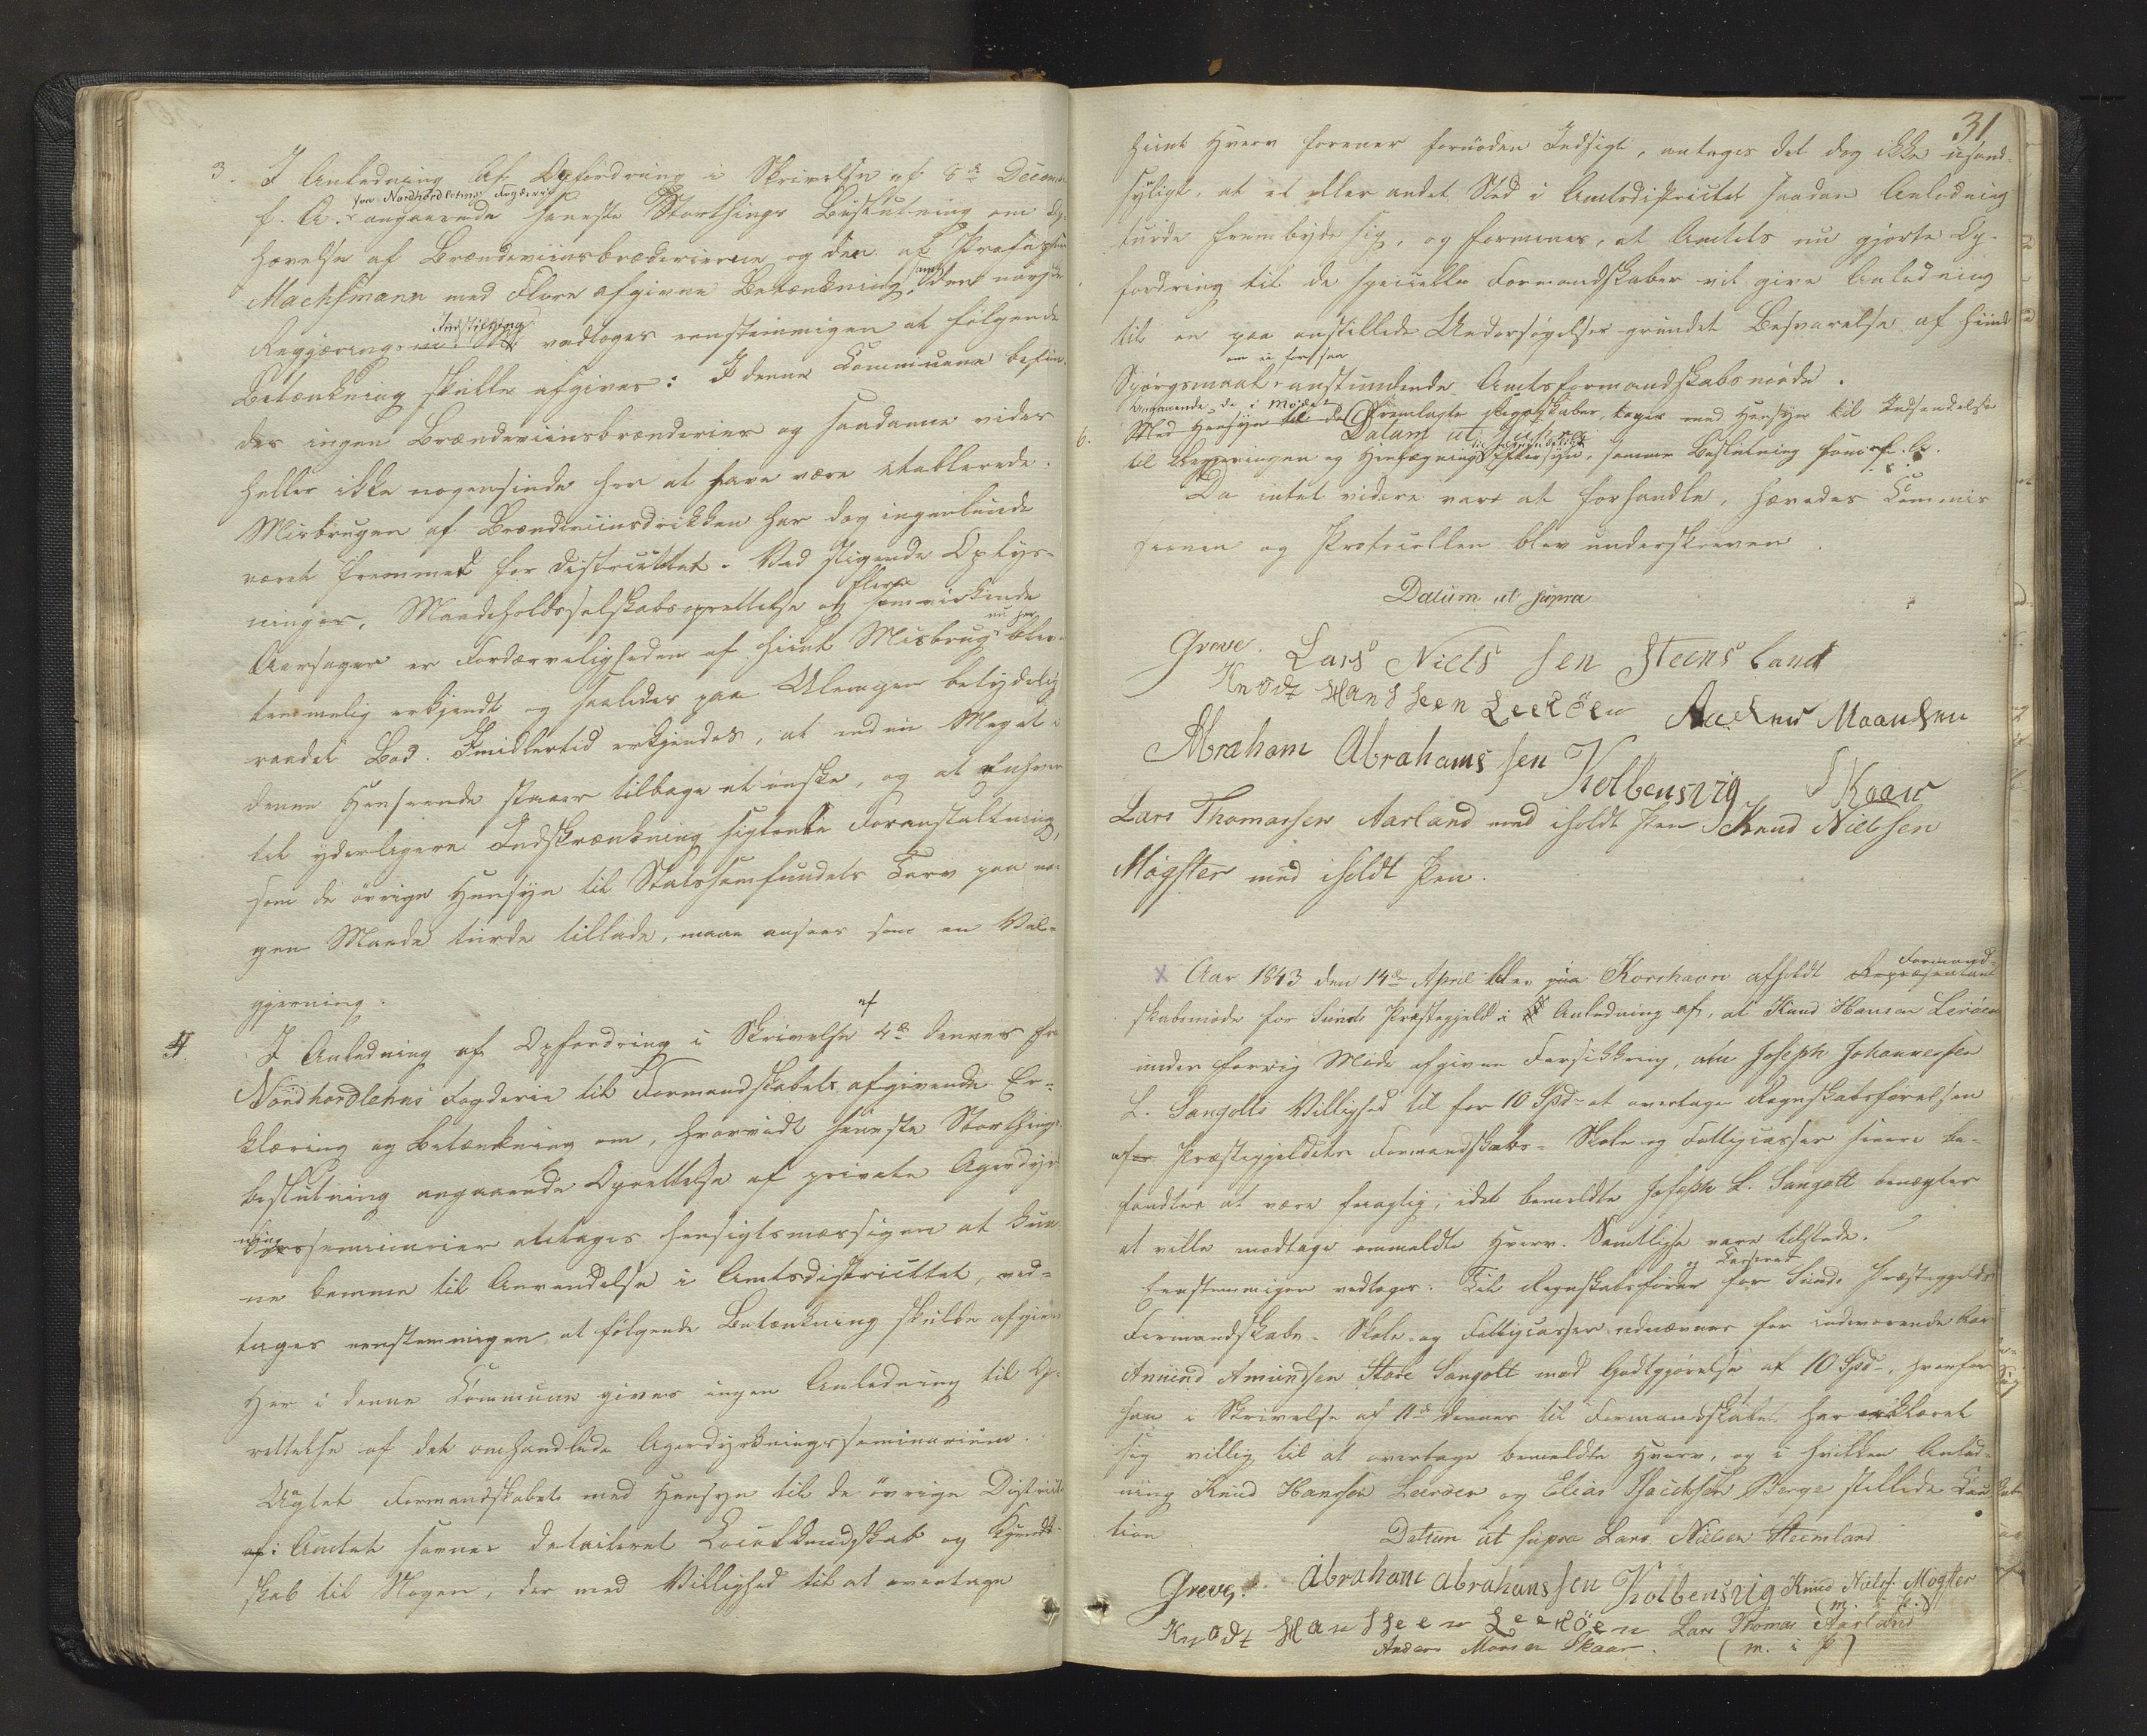 3. I Anledning af Opfordring i Skrivelse af 8de Decemb
f. A. fra Nordhordlehns Fogderie angaaende seneste Storthings Beslutning om Op-
hævelse af Brændeviinsbrænderierne og den af Professor
Machsmann med Flere afgivne Betænkning, samt den norske
Regjerings Indstilling vedtoges eenstemmigen at følgende
Betænkning skulle afgives: I denne Commune befin-
des ingen Brændeviinsbrænderier og saadanne vides
heller ikke nogensinde her at have være etablerede.
Misbrugen af Brændeviinsdrikken har dog ingenlunde
været fremmed for Districtet. Ved stigende Oplys-
ninger, Maadeholdsselskabsoprettelse og flere samvirkende
Aarsager er Fordærveligheden af hiint Misbrug nu her bleven
temmelig erkjendt og saaledes paa Ulempen betydelig
raadet Bod. Imidlertid erkjendes, at endnu Meget i
denne Henseende staaer tilbage at ønske, og at enhver
til yderligere Indskrænkning sigtende Foranstaltning,
som de øvrige Hensyn til Statssamfundets Tarv paa no-
gen Maade turde tillade, maae ansees som en Vel-
gjerning.
4. I Anledning af Opfordring i Skrivelse af 4de dennes fra
Nordhordlehns Fogderie til Formandskabets afgivende Er-
klæring og Betænkning om, hvorvidt seneste Storthings-
beslutning angaaende Oprettelse af private Agerdyrk-
nings seminarier antages hensigtsmæssigen at kun-
ne komme til Anvendelse i Amtsdistrictet, ved-
toges eenstemmigen at følgende Betænkning skulle afgives
Her i denne Commune gives ingen Anledning til Op-
rettelse af det omhandlede Agerdyrkningsseminarium.
Uagtet Formandskabet med Hensyn til de øvrige District
af Amtet savner detailleret Localkundskab og Kjend-
skab til Nogen, der med Villighed til at overtage
31
hiint Hverv forener fornøden Indsigt, antages det dog ikke usand-
synligt, at et eller andet Sted i Amtsdistrictet saadan Anledning
turde frembyde sig, og formenes, at Amtets nu gjorte Op-
fordring til de specielle Formandskaber vil give Anledning
til en paa anstillede Undersøgelser grundet Besvarelse af hiint
Spørgsmaal anstundende Amtsformandskabsmøde.
6. Med Hensyn til de Angaaende de i Mødet fremlagte Regnskaber, toges med Hensyn til Indsendelse
Datum ut supra
til Regjeringen og Hensægning til Eftersyn, samme Beslutning som f. A.
Da intet videre vare at forhandle, hævedes Commis
sionen og Protocollen blev underskreven.
Datum ut supra
Greve. Lars Niels sen Steensland
Knodt Hansseen Leeröen Anders Maansen
Abraham Abrahams sen Kolbensvig Skaar
Lars Thomassen Aarland med iholdt Pen Knud Nielssen
Møgster med iholdt Pen.
x Aar 1843 den 14de April blev paa Korshavn afholdt Repræsentant Formand-
skabsmøde for Sunds Præstegjeld i Anledning af, at Knud Hansen Lerøen
under forrig Møde afgivne Forsikkring, om Joseph Johannessen
L. Sangolts Villighed til for 10 Spd at overtage Regnskabsførelsen
af Præstegjeldets Formandskabs- Skole og Fattigcasser senere be-
fandtes at være feagtig, idet bemeldte Joseph L. Sangolt benægtes
at ville modtage ommeldte Hverv. Samtlige vare tilstede.
Eenstemmigen vedtoges: Til Regnskabsfører og Casserer for Sunds Præstegjelds
Formandskabs- Skole- og Fattigcasser udnævnes for indeværende Aar
Amund Amundsen Store Sangolt mod Godtgjørelse af 10 Spd, hvorfor
han i Skrivelse af 11te dennes til Formandskabet har erklæret
sig villig til at overtage bemeldte Hverv, og i hvilken Anled-
ning Knud Hanssen Leerøen og Elias Isachsen Berge stillede Cau-
tion
Datum ut supra Lars Nielsen Steensland
Greve. Abraham Abrahamssen Kolbensvig Knud Niels. Møgster
(m. i. P.)
Knodt Hansseen Leeröen Lars Thomas Aarland
Anders Monsen Skaar. (m. i P)